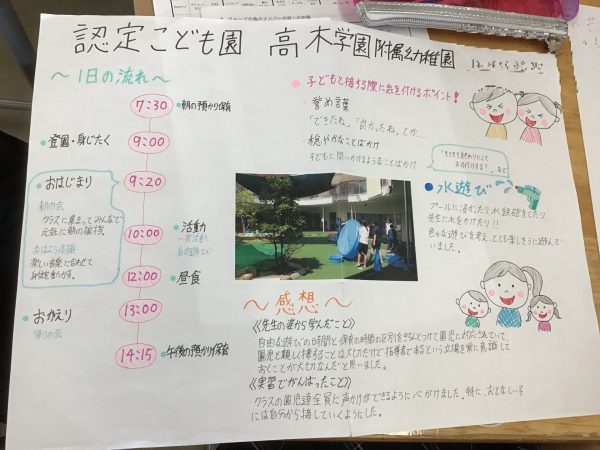 認定こども園 高木学園附属幼稚園
～1日の流れ～
7:30 ・朝の預かり保育
・登園・身じたく 9:00
・おはじまり 9:20
朝の会
クラスに集まってみんなで
元気に朝の挨拶。
おはよう体操
楽しい音楽に合わせて
身体を動かす。
10:00 ・活動
一斉活動
自由遊び
12:00 ・昼食
・おかえり 13:00
帰りの会
14:15 ・午後の預かり保育
・子どもと接する際に気を付けるポイント!
・誉め言葉
「できたね」「良かったね」とか....
・穏やかなことばかけ
子どもに問いかけるようなことばかけ
「そろそろ終わりにして
お片付けする?」など
・水遊び
プールに浸かったり、水鉄砲をしたり
先生に水をかけたり!!
色々な遊びを考え、とても楽しそうに遊んで
いました。
～感想～
《先生の姿から学んだこと》
自由な遊びの時間と保育の時間の区別をきちんとつけて園児に対応されていて、
園児と親しく接することは大切だけど"指導者"であるという立場を常に意識して
おくことが大切なんだと思いました。
《実習でがんばったこと》
クラスの園児達全員に声かけができるように心がけました。特に、おとなしい子
には自分から接していくようにしました。